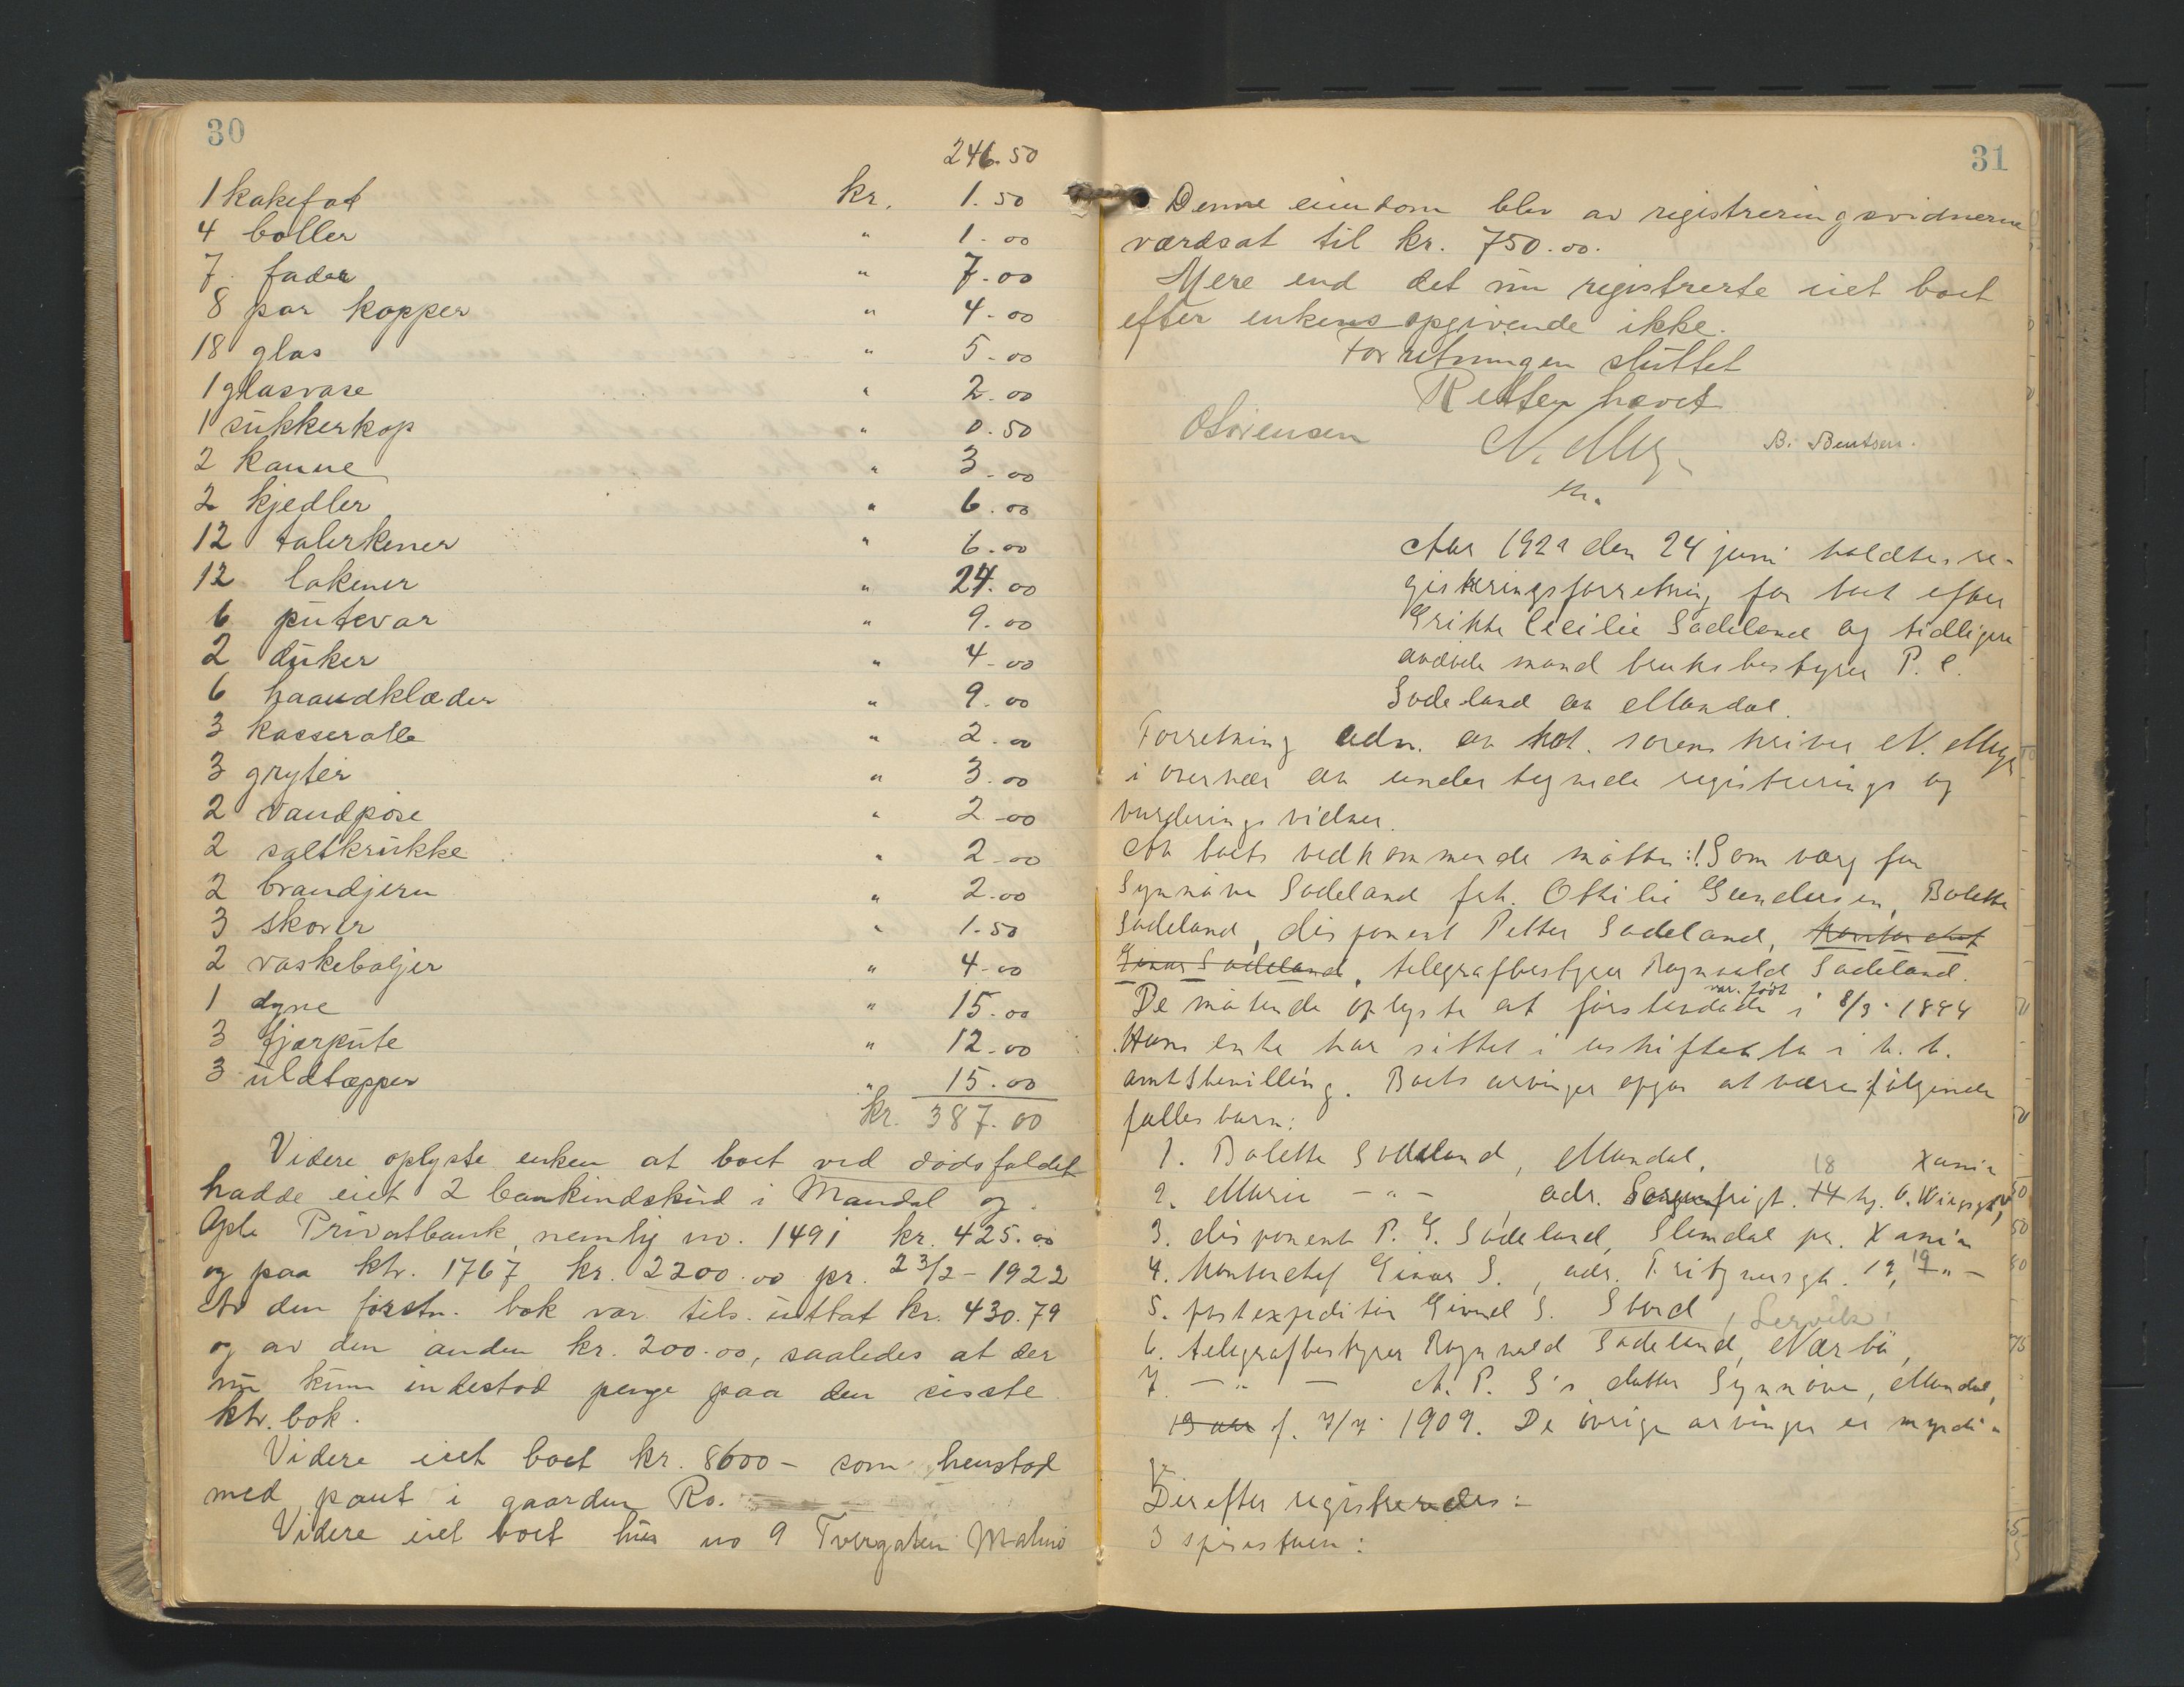 30
246.50
1 kakefat kr. 1.50
4 boller " 1.00
7 fader " 7.00
8 par kopper " 4.00
18 glas " 5.00
1 glasvase " 2.00
1 sukkerkop " 0.50
2 kanne " 3.00
2 kjedler " 6.00
12 talerkener " 6.00
12 lakener " 24.00
6 putevar " 9.00
2 duker " 4.00
6 haandklæder " 9.00
3 kasserolle " 2.00
3 gryter " 3.00
2 vandpøse " 2.00
2 saltkrukke " 2.00
2 brandjern " 2.00
3 skorer " 1.50
2 vaskebaljer " 4.00
1 dyne " 15.00
3 fjærpute " 12.00
3 uldtæpper " 15.00
kr. 387.00
Videre oplyste enken at boet ved dødsfaldet
hadde eiet 2 bankindskud i Mandal og
Opl. Privatbank, nemlig no. 1491 kr. 425.00
og paa ktr. 1767 kr. 2200.00 pr. 23/2-1922
Av den førstn. bok var tils. uttat kr. 430.79
og av den anden kr. 200.00, saaledes at der
nu kun indestod penge paa den sisste
ktr. bok.
Videre eiet boet kr. 8600 - som henstod
med pant i gaarden Ro.
Videre eiet boet hus no 9 Tvergaten Malmø
31
Denne eiendom blev av registreringsvidnerne
værdsat til kr. 750.00.
Mere end det nu registrerte eiet boet
efter enkens opgivende ikke.
Forretningen sluttet
Retten hævet
O Sørensen N. B. Bentsen.
Aar 1922 den 24 juni holdtes re-
gistreringsforretning for boet efter
Grethe Cecilie Sødeland og tidligere
avdøde mand bruksbestyrer P. C.
Sødeland av Mandal.
Forretning adm. av kst. sorenskriver N.
i overvær av undertegnede registrerings og
vurderingsvidner.
Av boets vedkommende møtte: Som værg for
Synnøve Sødeland frk. Othilie Gundersen, Bolette
Sødeland, disponent Petter Sødeland, kontorchef
Einar Sødeland, telegrafbestyrer Ragnvald Sødeland.
var født
De møtende oplyste at førstavdøde i 8/3-1844
Hans enke har sittet i uskiftet bo i h. t.
amtsbevilling. Boets arvinger opgas at være følgende
fælles barn:
1. Bolette Sødeland, Mandal, 18 Xania
2. Marie - " - , adr. Sorgenfrigt. 14
3. disponent P. G. Sødeland, Slemdal pr. Xania
4. kontorchef Einar S., adr. Fritznersgt. 19, 19 " -
5. postexpeditør S. Stord, Lervik
6. telegrafbestyrer Ragnvald Sødeland, Nærbø,
7. - " - A. P. S's datter Synnøve, Mandal,
13 aar f. 7/7 1909. De øvrige arvinger er myndi-
ge.
Derefter registreredes:
I spisestuen: